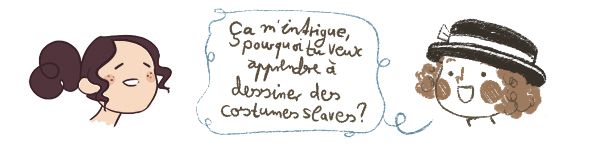 Ça m'intrigue,
pourquoi tu veux
apprendre à
dessiner des
costumes slaves?